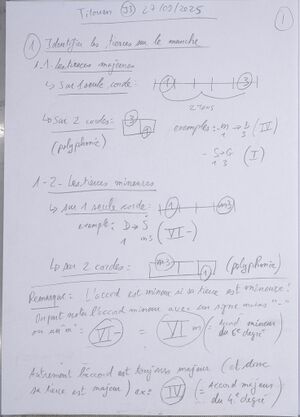 Titouan 33 27/09/2025
1
1 Identifier les tierces sur le manche
1-1- Les tierces majeures
↳ Sur 1 seule corde: 1 3
2 tons
↳ Sur 2 cordes: 3 1
(polyphonie)
exemples: → D (IV)
1 3
- S→G (I)
1 3
1-2- Les tierces mineures
↳ sur 1 seule corde: 1 m3
exemple: D → S (VI-)
1 m3
↳ sur 2 cordes: m3 1 (polyphonie)
Remarque: L'accord est mineur si sa tierce est mineure!
On peut noter l'accord mineur avec un signe moins "-"
ou un "m": VI- = VIm (= accord mineur du 6e degré)
Autrement l'accord est toujours majeur (et donc
sa tierce est majeure) ex: IV (= accord majeur du 4e degré)